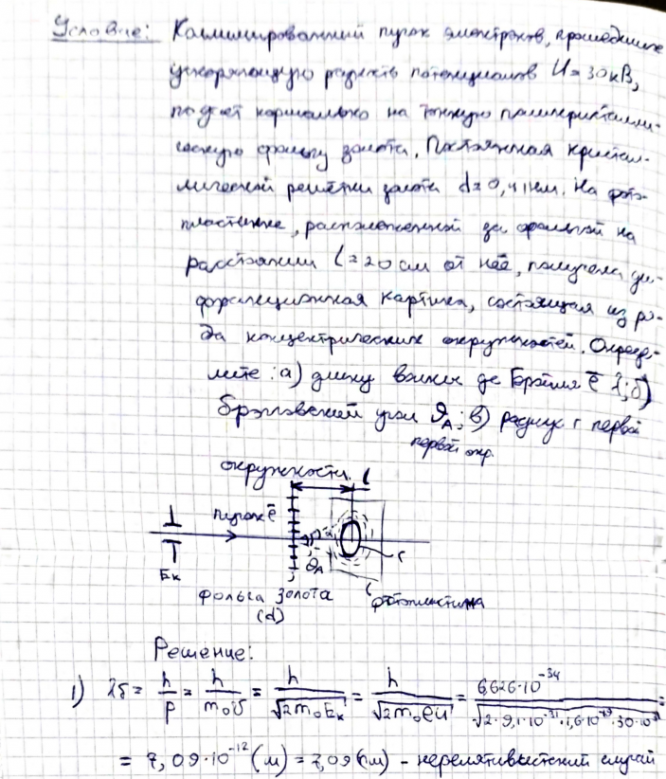 Условие: Коллимированный пучок электронов, прошедших
ускоряющую разность потенциалов U=30кВ,
падает нормально на тонкую поликристалли-
ческую фольгу золота. Постоянная кристал-
лической решётки золота d=0,41нм. На фото-
пластинке, расположенной за фольгой на
расстоянии l=20 см от неё, получена ди-
фракционная картина, состоящая из ря-
да концентрических окружностей. Опреде-
лите: а) длину волны де Бройля ē λ; б)
Брэгговский угол θ_A; в) радиус r первой
первой окр.
окружности.
l
пучок ē
E_к
θ_A
r
фольга золота
фотопластина
(d)
Решение:
1) λ_б = h/p = h/(m₀v) = h/√(2m₀E_к) = h/√(2m₀eU) = 6,626·10⁻³⁴/√(2·9,1·10⁻³¹·1,6·10⁻¹⁹·30·10³) =
= 7,09·10⁻¹² (м) = 7,09 (пм) - нерелятивистский случай